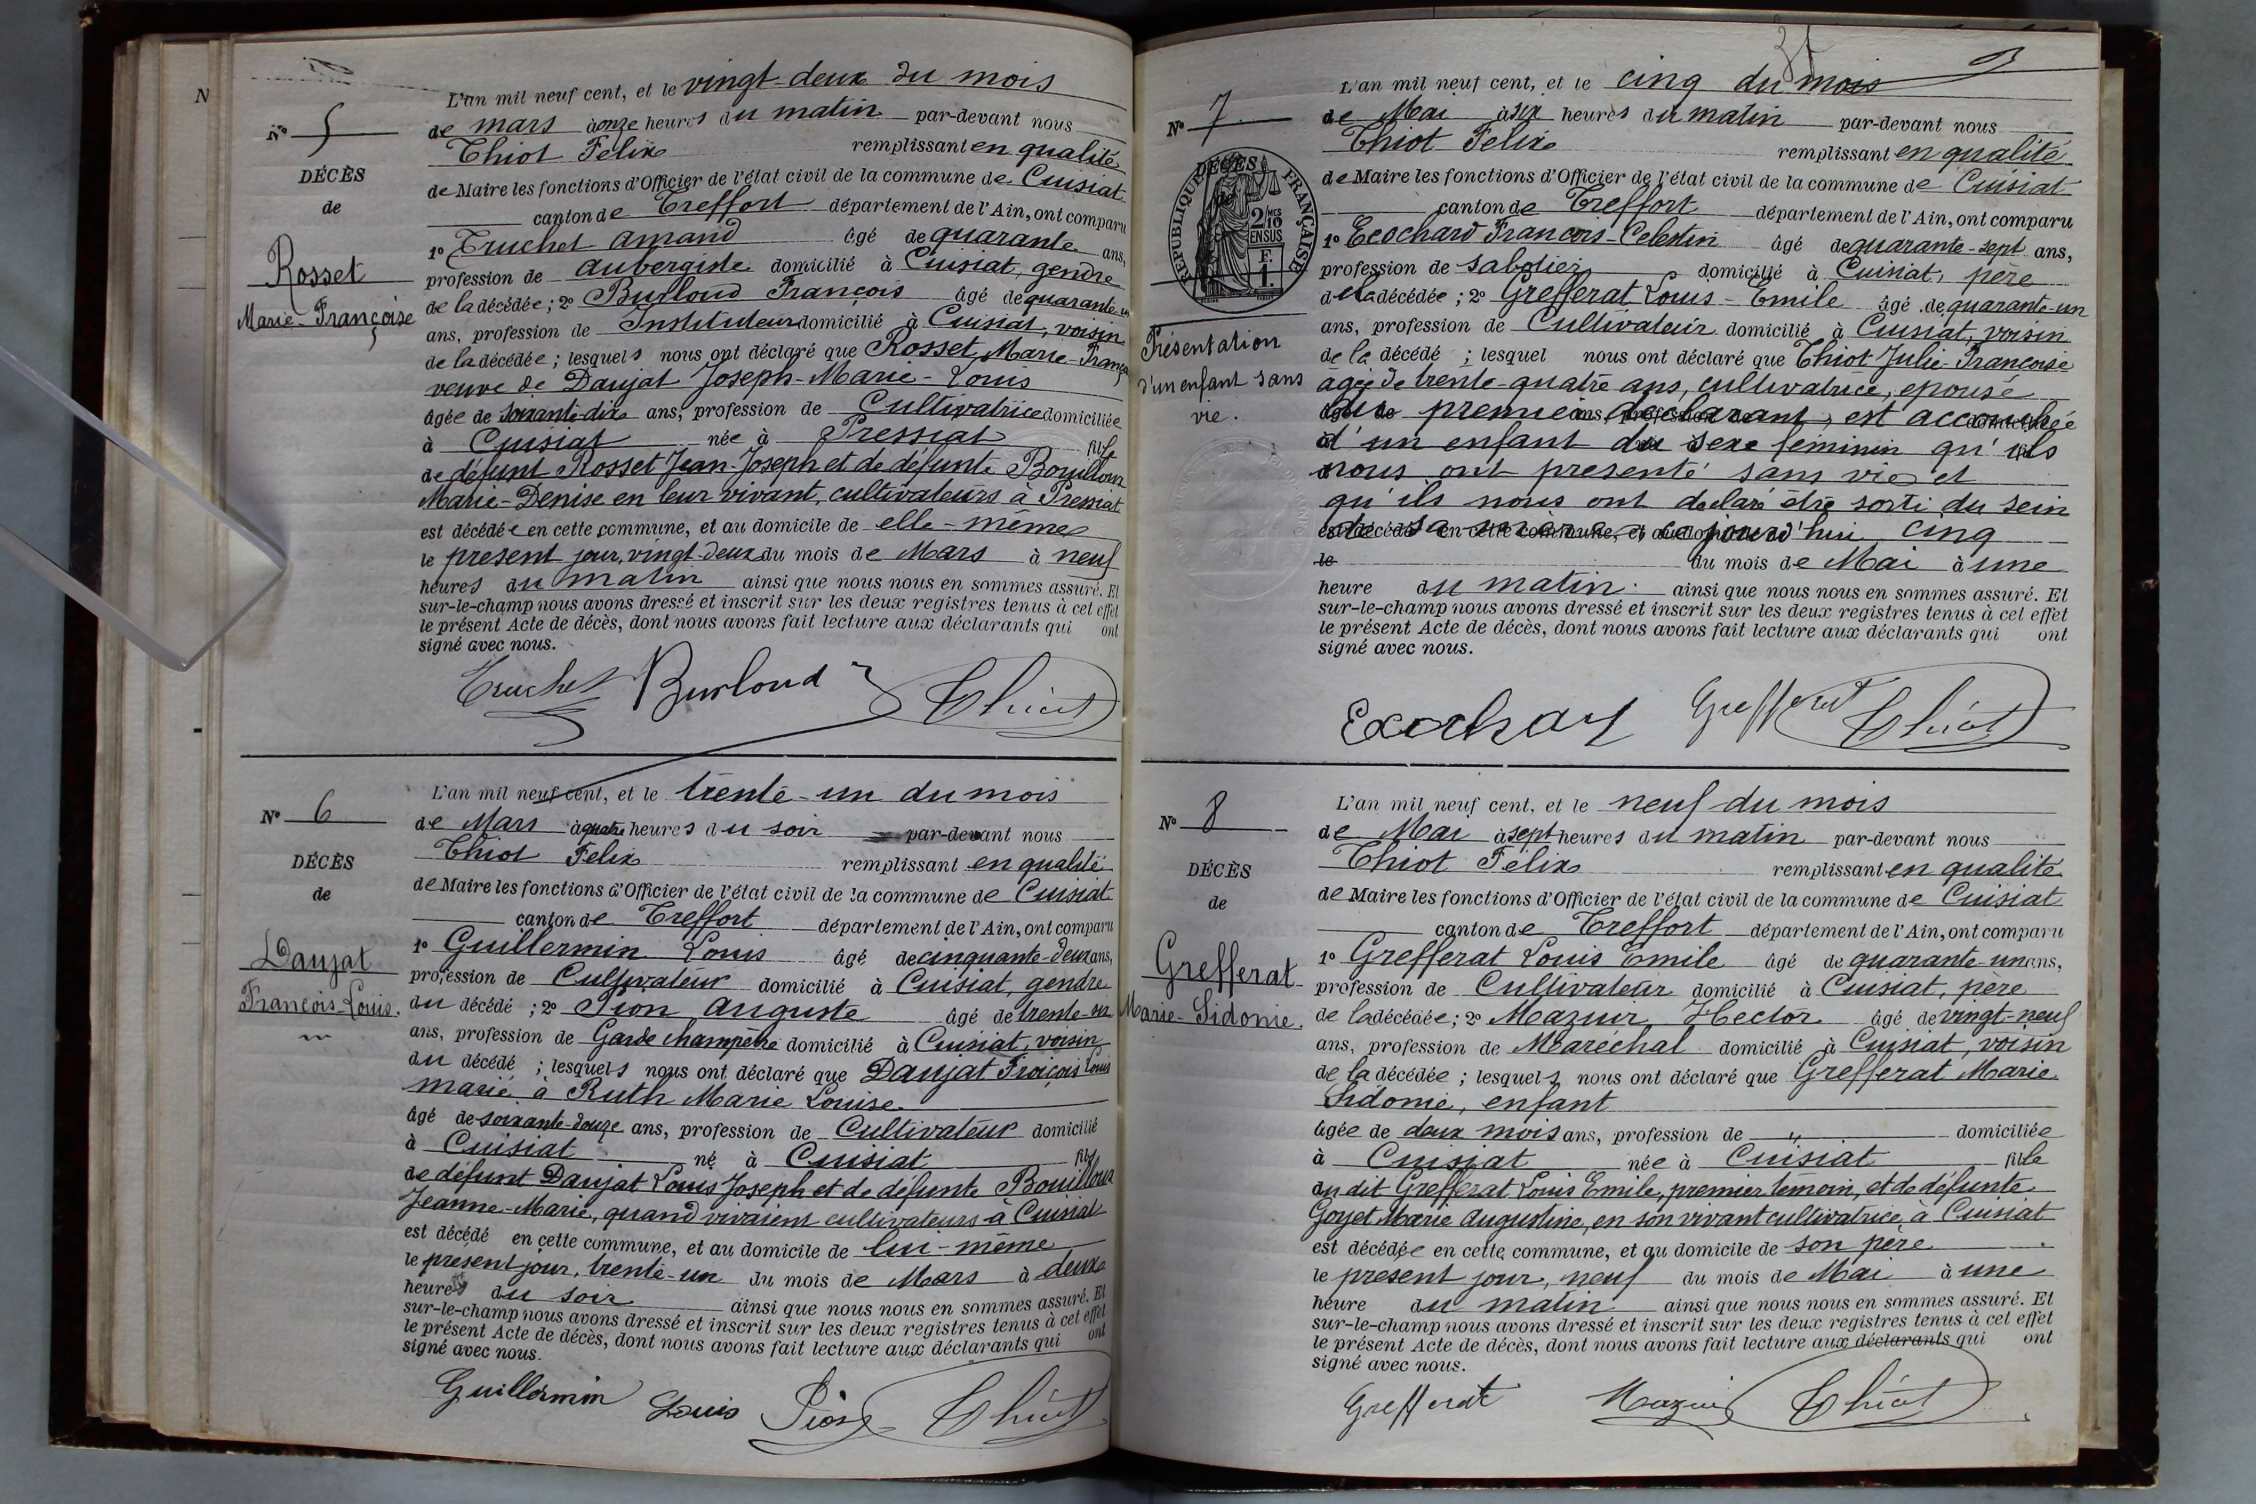 N
Nº 5
DÉCÈS
de
Rosset
Marie-Françoise
L'an mil neuf cent, et le vingt-deux du mois
de mars à onze heures du matin par-devant nous
Thiot Felix remplissant en qualité
de Maire les fonctions d'Officier de l'état civil de la commune de Cuisiat
canton de Treffort département de l'Ain, ont comparu
1º Truchet Amand âgé de quarante ans,
profession de aubergiste domicilié à Cuisiat, gendre
de la décédée ; 2º Burloud François âgé de quarante-un
ans, profession de Instituteur domicilié à Cuisiat, voisin
de la décédée ; lesquels nous ont déclaré que Rosset Marie-França
veuve de Daujat Joseph-Marie-Louis
âgée de soixante-dix ans, profession de Cultivatrice domiciliée
à Cuisiat née à Pressiat fille
de défunt Rosset Jean-Joseph et de défunte Bouilloux
Marie-Denise en leur vivant, cultivateurs à Pressiat
est décédée en cette commune, et au domicile de elle-même
le présent jour, vingt-deux du mois de Mars à neuf
heures du matin ainsi que nous nous en sommes assuré. Et
sur-le-champ nous avons dressé et inscrit sur les deux registres tenus à cet effet
le présent Acte de décès, dont nous avons fait lecture aux déclarants qui ont
signé avec nous.
Truchet Burloud Thiot
Nº 6
DÉCÈS
de
Daujat
François-Louis.
L'an mil neuf cent, et le trente-un du mois
de Mars à quatre heures du soir par-devant nous
Thiot Felix remplissant en qualité
de Maire les fonctions d'Officier de l'état civil de la commune de Cuisiat
canton de Treffort département de l'Ain, ont comparu
1º Guillermin Louis âgé de cinquante-deux ans,
profession de Cultivateur domicilié à Cuisiat, gendre
du décédé ; 2º Pion Auguste âgé de trente-un
ans, profession de Garde champêtre domicilié à Cuisiat, voisin
du décédé ; lesquels nous ont déclaré que Daujat François Louis
marié à Ruth Marie Louise
âgé de soixante-douze ans, profession de Cultivateur domicilié
à Cuisiat né à Cuisiat fils
de défunt Daujat Louis Joseph et de défunte Bouilloux
Jeanne-Marie, quand vivaient cultivateurs à Cuisiat
est décédé en cette commune, et au domicile de lui-même
le présent jour, trente-un du mois de Mars à deux
heures du soir ainsi que nous nous en sommes assuré. Et
sur-le-champ nous avons dressé et inscrit sur les deux registres tenus à cet effet
le présent Acte de décès, dont nous avons fait lecture aux déclarants qui ont
signé avec nous.
Guillermin Louis Pion Thiot
Nº 7
DÉCÈS
de
REPUBLIQUE FRANÇAISE
2/10 EN SUS
F. 1.
Présentation
d'un enfant sans
vie.
L'an mil neuf cent, et le cinq du mois
de Mai à six heures du matin par-devant nous
Thiot Felix remplissant en qualité
de Maire les fonctions d'Officier de l'état civil de la commune de Cuisiat
canton de Treffort département de l'Ain, ont comparu
1º Ecochard Francois-Celestin âgé de quarante-sept ans,
profession de sabotier domicilié à Cuisiat, père
de la décédée ; 2º Grefferat Louis-Emile âgé de quarante-un
ans, profession de Cultivateur domicilié à Cuisiat, voisin
de la décédé ; lesquel nous ont déclaré que Thiot Julie-Francoise
âgée de trente-quatre ans, cultivatrice, épouse
du premier déclarant, est accouchée
d'un enfant du sexe féminin qu'ils
nous ont présenté sans vie et
qu'ils nous ont déclaré être sorti du sein
de sa mère cejourd'hui cinq
le du mois de Mai à une
heure du matin ainsi que nous nous en sommes assuré. Et
sur-le-champ nous avons dressé et inscrit sur les deux registres tenus à cet effet
le présent Acte de décès, dont nous avons fait lecture aux déclarants qui ont
signé avec nous.
Grefferat Thiot
Nº 8
DÉCÈS
de
Grefferat
Marie-Sidonie.
L'an mil neuf cent, et le neuf du mois
de Mai à sept heures du matin par-devant nous
Thiot Félix remplissant en qualité
de Maire les fonctions d'Officier de l'état civil de la commune de Cuisiat
canton de Treffort département de l'Ain, ont comparu
1º Grefferat Louis Emile âgé de quarante-un ans,
profession de Cultivateur domicilié à Cuisiat, père
de la décédée ; 2º Mazuir Hector âgé de vingt-neuf
ans, profession de Maréchal domicilié à Cuisiat, voisin
de la décédée ; lesquels nous ont déclaré que Grefferat Marie
Sidonie, enfant
âgée de deux mois ans, profession de " domiciliée
à Cuisiat née à Cuisiat fille
du dit Grefferat Louis Emile, premier témoin, et de défunte
Goyet Marie Augustine, en son vivant cultivatrice à Cuisiat
est décédée en cette commune, et au domicile de son père
le présent jour, neuf du mois de Mai à une
heure du matin ainsi que nous nous en sommes assuré. Et
sur-le-champ nous avons dressé et inscrit sur les deux registres tenus à cet effet
le présent Acte de décès, dont nous avons fait lecture aux déclarants qui ont
signé avec nous.
Grefferat Mazuir Thiot